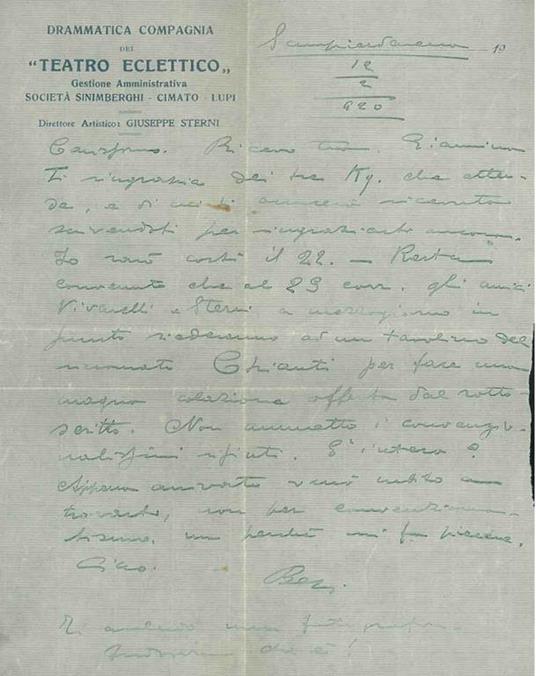 DRAMMATICA COMPAGNIA
DEI
"TEATRO ECLETTICO„
Gestione Amministrativa
SOCIETÀ SINIMBERGHI - CIMATO - LUPI
Direttore Artistico: GIUSEPPE STERNI
Sampierdarena 19
12
2
920
Ricevo tua.
Ti ringrazia dei tre Kg. che atten-
de, e di
scrivendoti per ringraziarti ancora.
Io sarò costì il 22. - Resta
convenuto che al 23 corr. gli amici
Vivarelli e Sterni a mezzogiorno in
punto siederanno ad un tavolino del
rinomato Chianti per fare una
magna colazione offerta dal sotto-
scritto. Non ammetto i convenzio-
nalissimi rifiuti. È inteso?
Appena arrivato verrò subito a
trovarti, non per convenziona-
lismo, ma perchè mi fa piacere.
Ciao.
una fotografia.
che è!